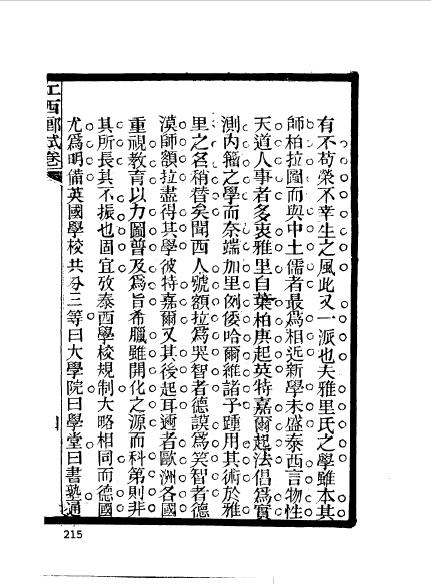 有不苟榮不幸生之風此又一派也夫雅里氏之學雖本其
師柏拉圖而與中土儒者最爲相近新學未盛泰西言物性
天道人事者多衷雅里自葉柏庚起英特嘉爾起法倡爲實
測內籀之學而奈端加里例倭哈爾維諸子踵用其術於雅
里之名稍替矣聞西人號額拉爲哭智者德謨爲笑智者德
漠師額拉盡得其學彼特嘉爾又其後起耳邇者歐洲各國
重視教育以力圖普及爲旨希臘雖開化之源而科第則非
其所長其不振也固宜攷泰西學校規制大略相同而德國
尤爲明備英國學校共分三等曰大學院曰學堂曰書塾通
江西鄉試卷
四
215